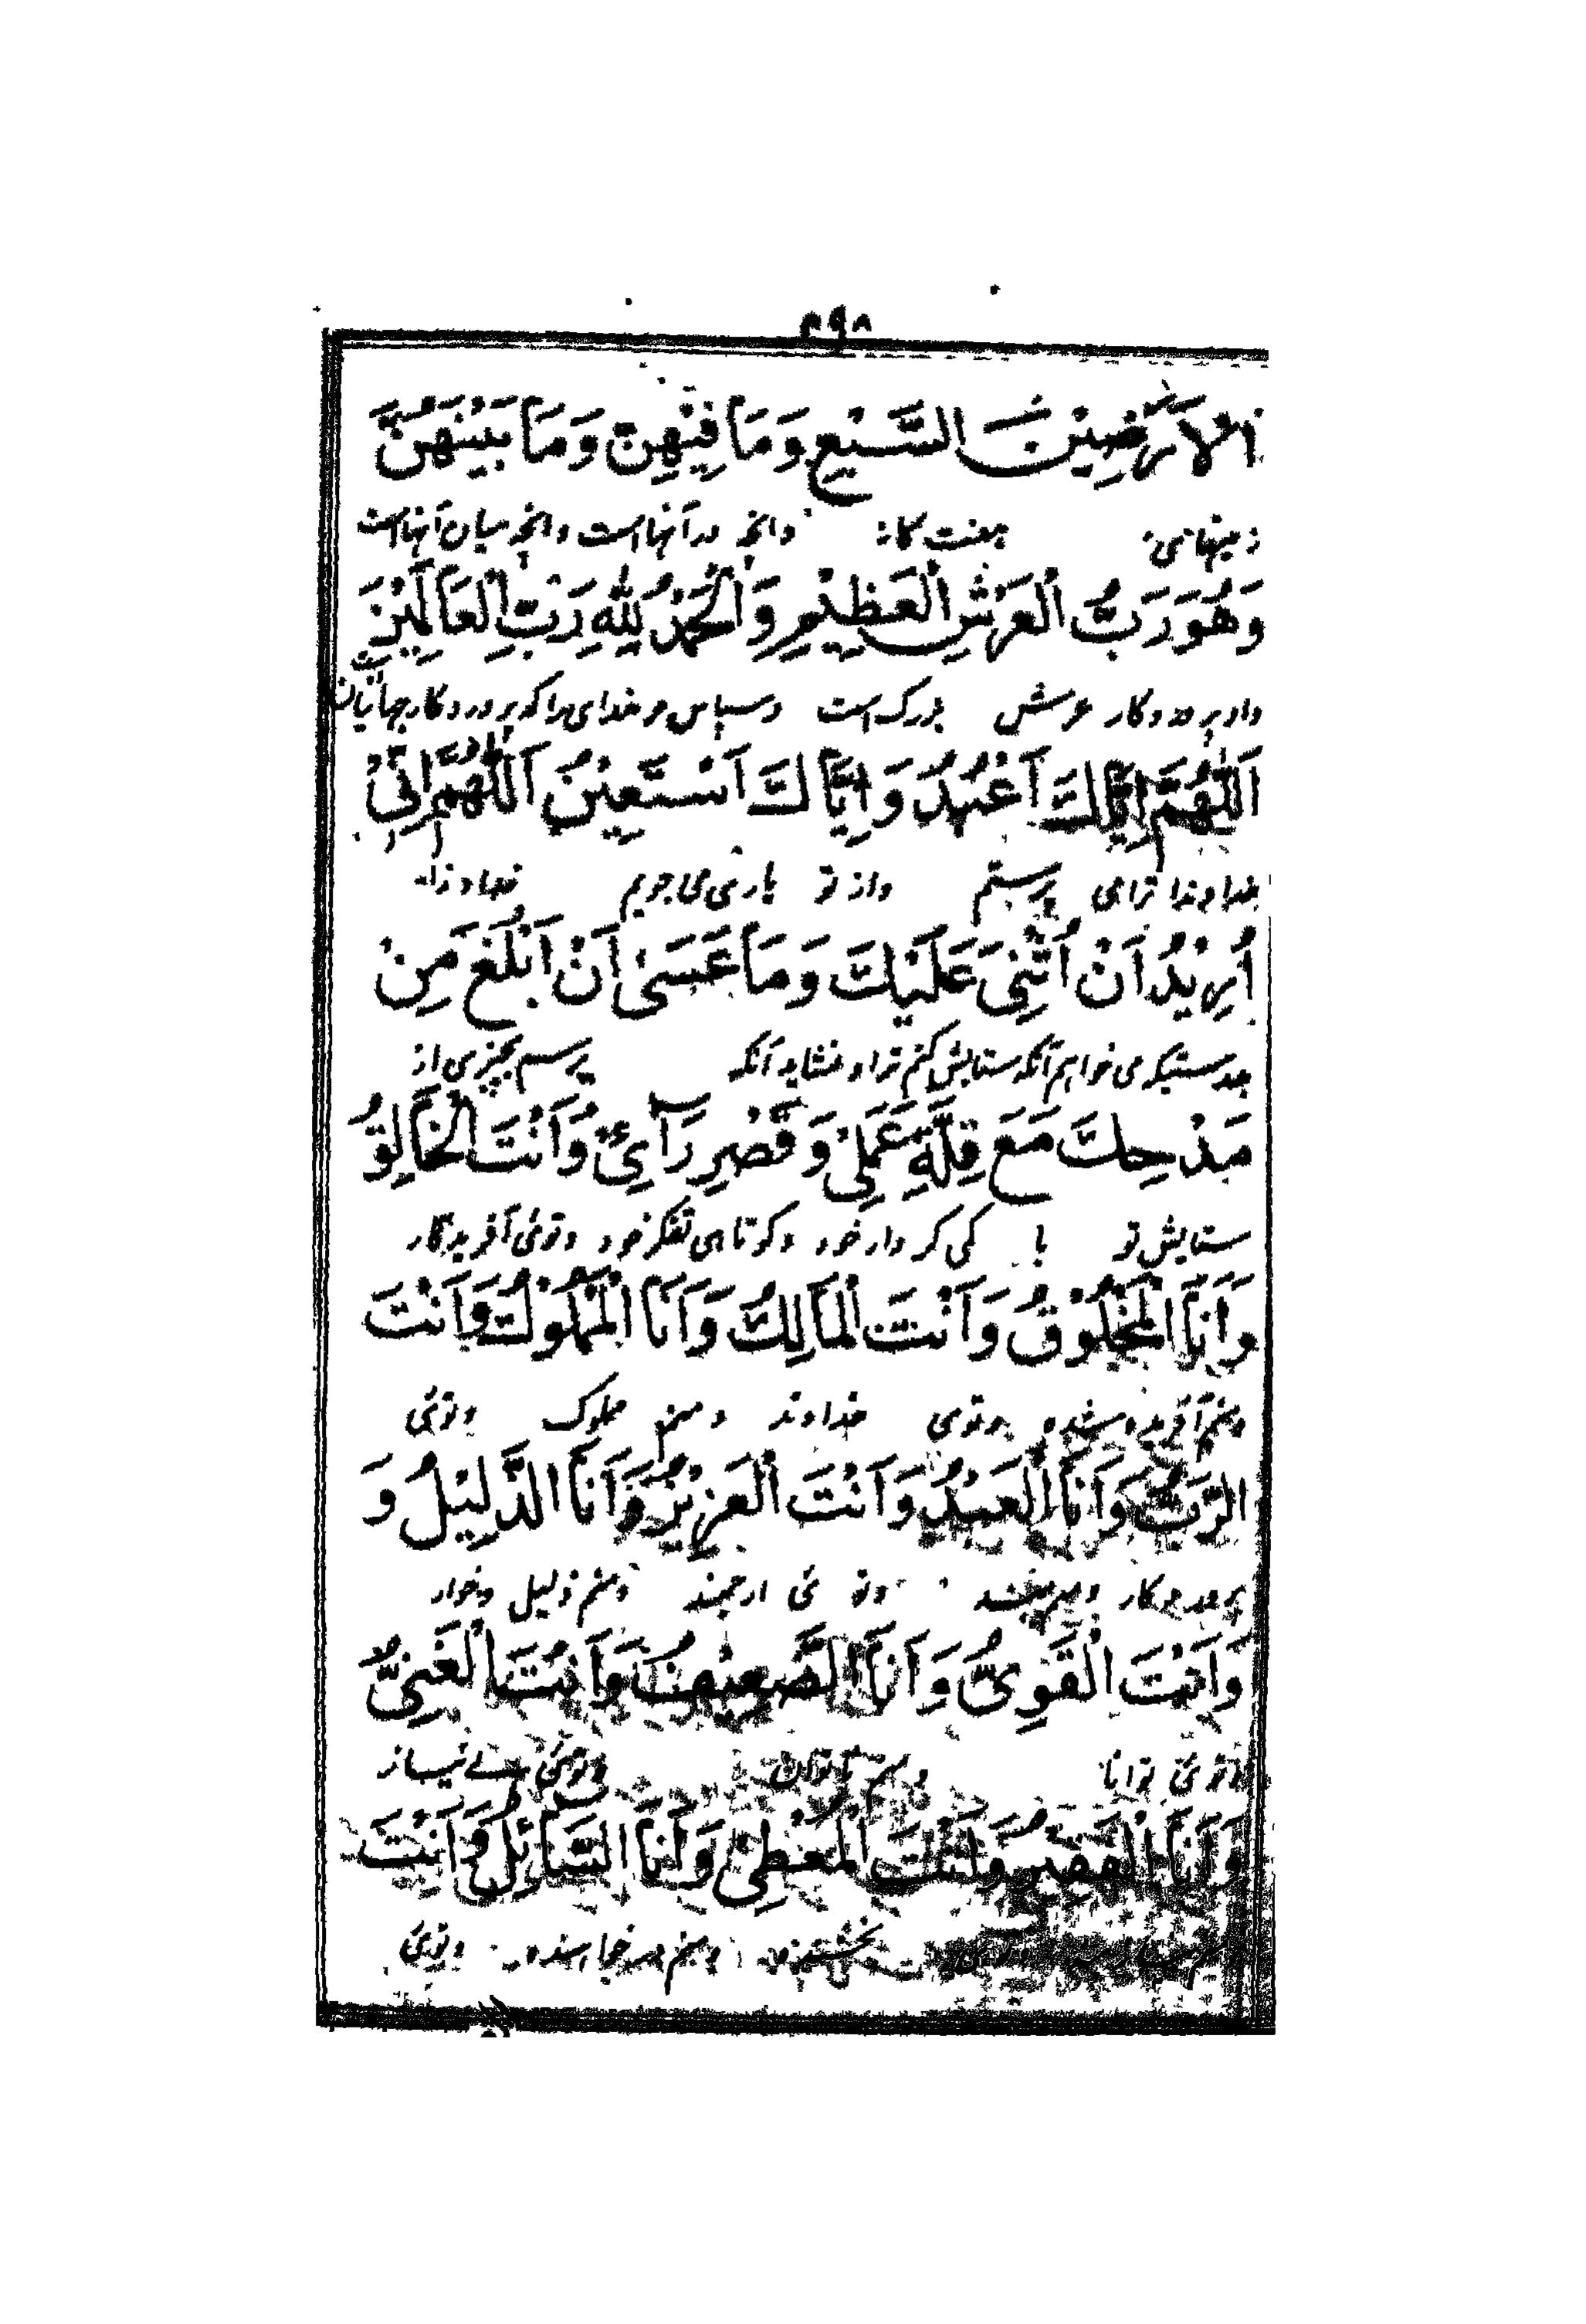 ۲۹۸
الْاَرَضِيْنَ السَّبْعِ وَمَا فِيْهِنَّ وَمَا بَيْنَهُنَّ
زمینهای هفت گانه وانچه در آنها است وانچه میان آنها است
وَهُوَ رَبُّ الْعَرْشِ الْعَظِيْمِ وَالْحَمْدُ لِلّٰهِ رَبِّ الْعَالَمِيْنَ
واو پروردگار عرش بزرگ است وسپاس مر خدای را که پروردگار جهانیان است
اَللّٰهُمَّ اِيَّاكَ اَعْبُدُ وَاِيَّاكَ اَسْتَعِيْنُ اَللّٰهُمَّ اِنِّيْ
خداوندا ترا می پرستم واز تو یاری می جویم خداوندا
اُرِيْدُ اَنْ اُثْنِيَ عَلَيْكَ وَمَا عَسٰى اَنْ اَبْلُغَ مِنْ
بدرستیکه می خواهم آنکه ستایش کنم ترا و نشاید آنکه برسم بچیزی از
مَدْحِكَ مَعَ قِلَّةِ عَمَلِيْ وَقَصْرِ رَاْئِيْ وَاَنْتَ الْخَالِقُ
ستایش تو با کمی کردار خود وکوتاهی تفکر خود وتوئی آفریدگار
وَاَنَا الْمَخْلُوْقُ وَاَنْتَ الْمَالِكُ وَاَنَا الْمَمْلُوْكُ وَاَنْتَ
ومنم آفریده شده وتوی خداوند ومنم مملوک وتوئی
الرَّبُّ وَاَنَا الْعَبْدُ وَاَنْتَ الْعَزِيْزُ وَاَنَا الذَّلِيْلُ وَ
پروردگار وتو ئی ارجمند ومنم ذلیل وخوار
وَاَنْتَ الْقَوِيُّ وَاَنَا الضَّعِيْفُ وَاَنْتَ الْغَنِيُّ
وتوئی توانا ومنم ناتوان وتوئی بے نیاز
وَاَنَا الْفَقِيْرُ وَاَنْتَ الْمُعْطِيْ وَاَنَا السَّائِلُ وَاَنْتَ
ومنم وتوئی